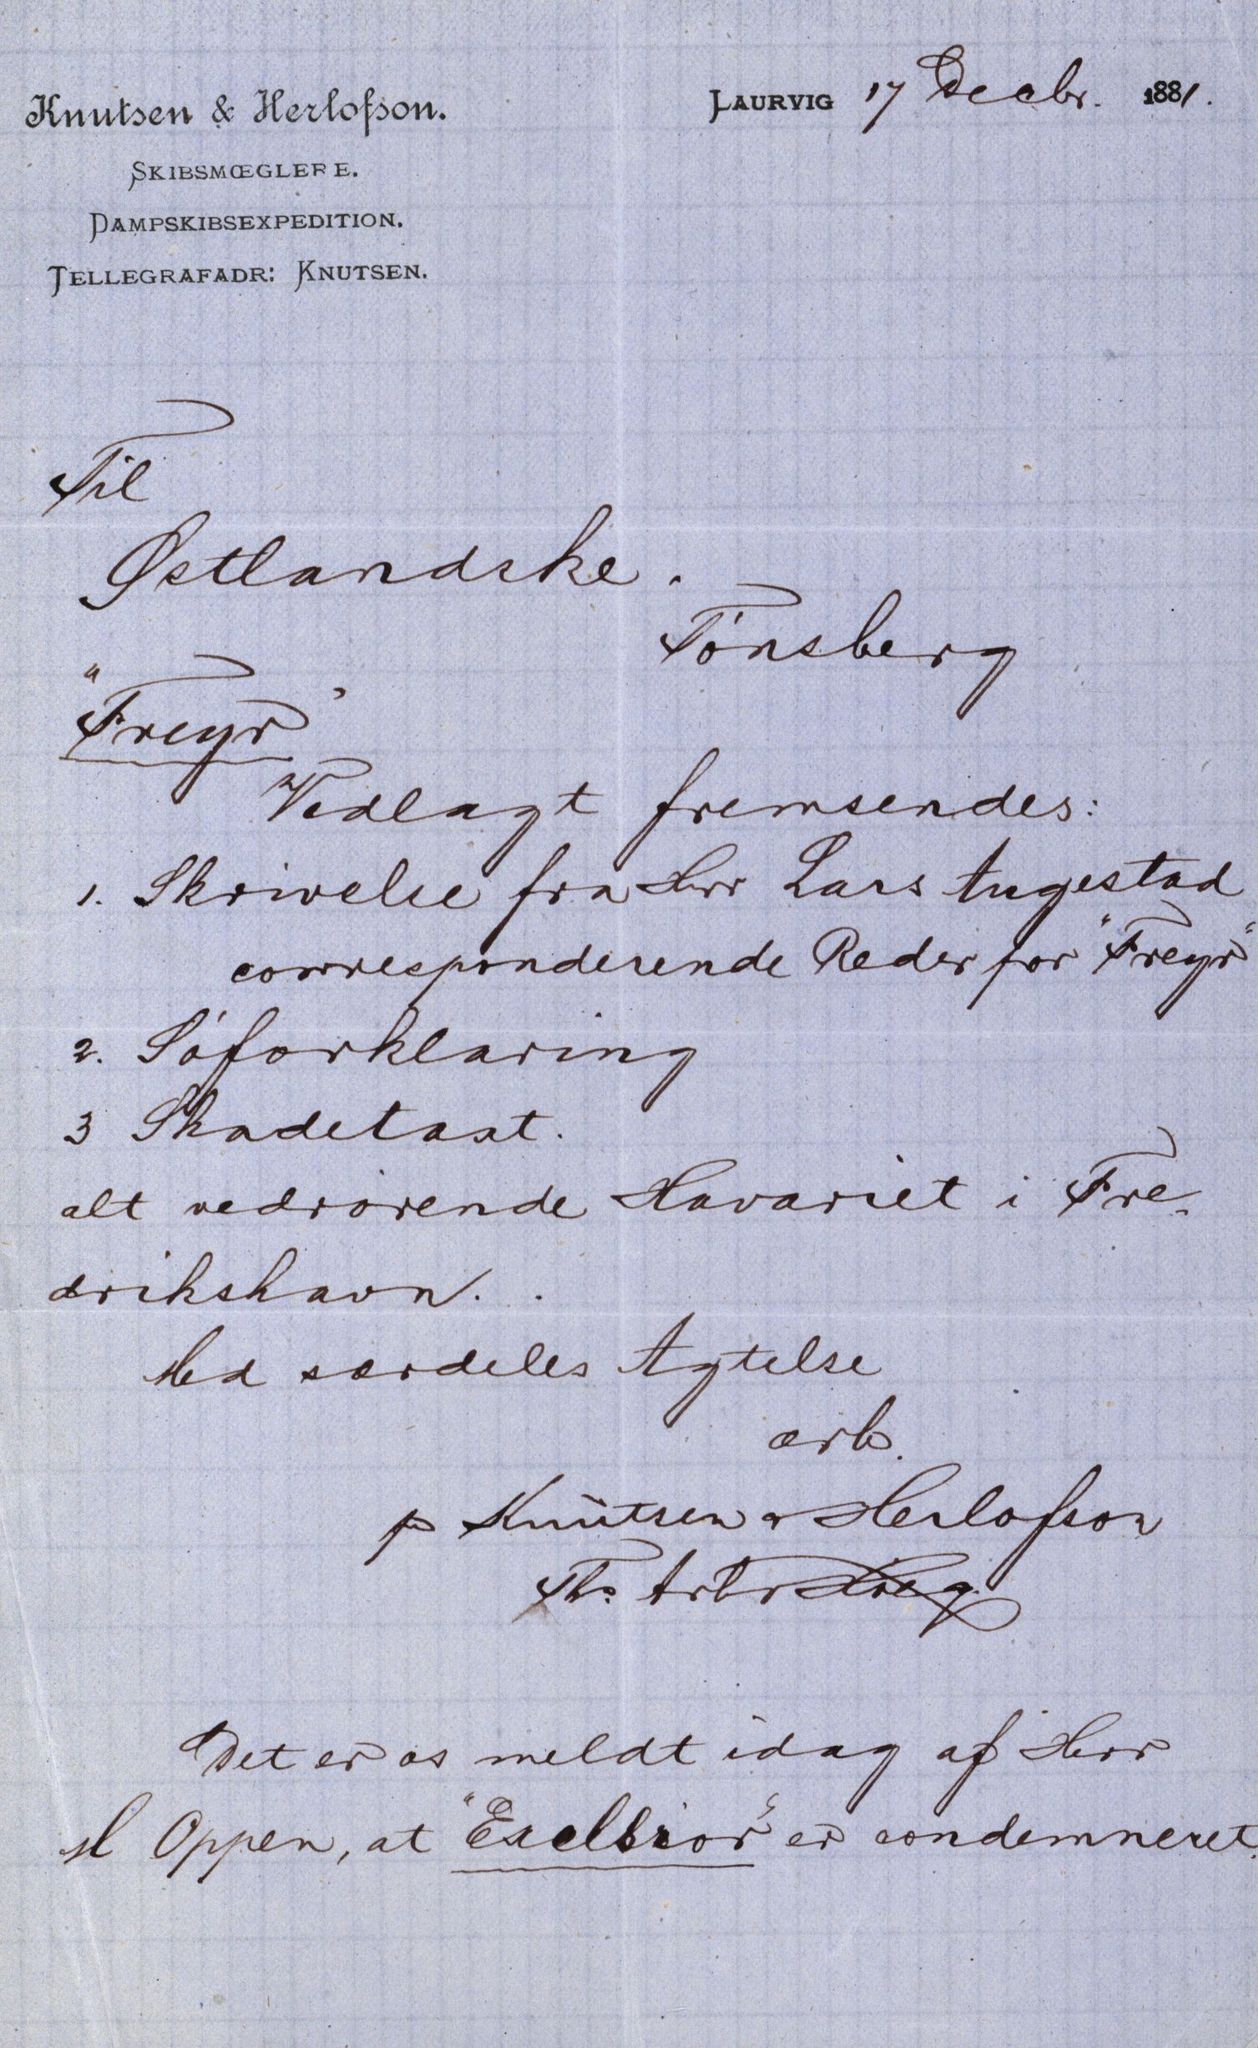 Knutsen & Herlofson.
SKIBSMŒGLERE.
DAMPSKIBSEXPEDITION.
TELLEGRAFADR: KNUTSEN.
LAURVIG 17 Decbr. 1881.
Til
Østlandske.
Tönsberg
"Freyr"
Vedlagt fremsendes:
1. Skrivelse fra Herr Lars Augestad
corresponderende Reder for "Freyr"
2. Söforklaring
3 Skadetaxt.
alt vedrörende Havariet i Fre-
drikshavn.
Med særdeles Agtelse
ærb.
p Knutsen & Herlofson
Ths. Arbo Höeg
Det er os meldt idag af Herr
M Oppen, at "Exelsior" er condemneret.